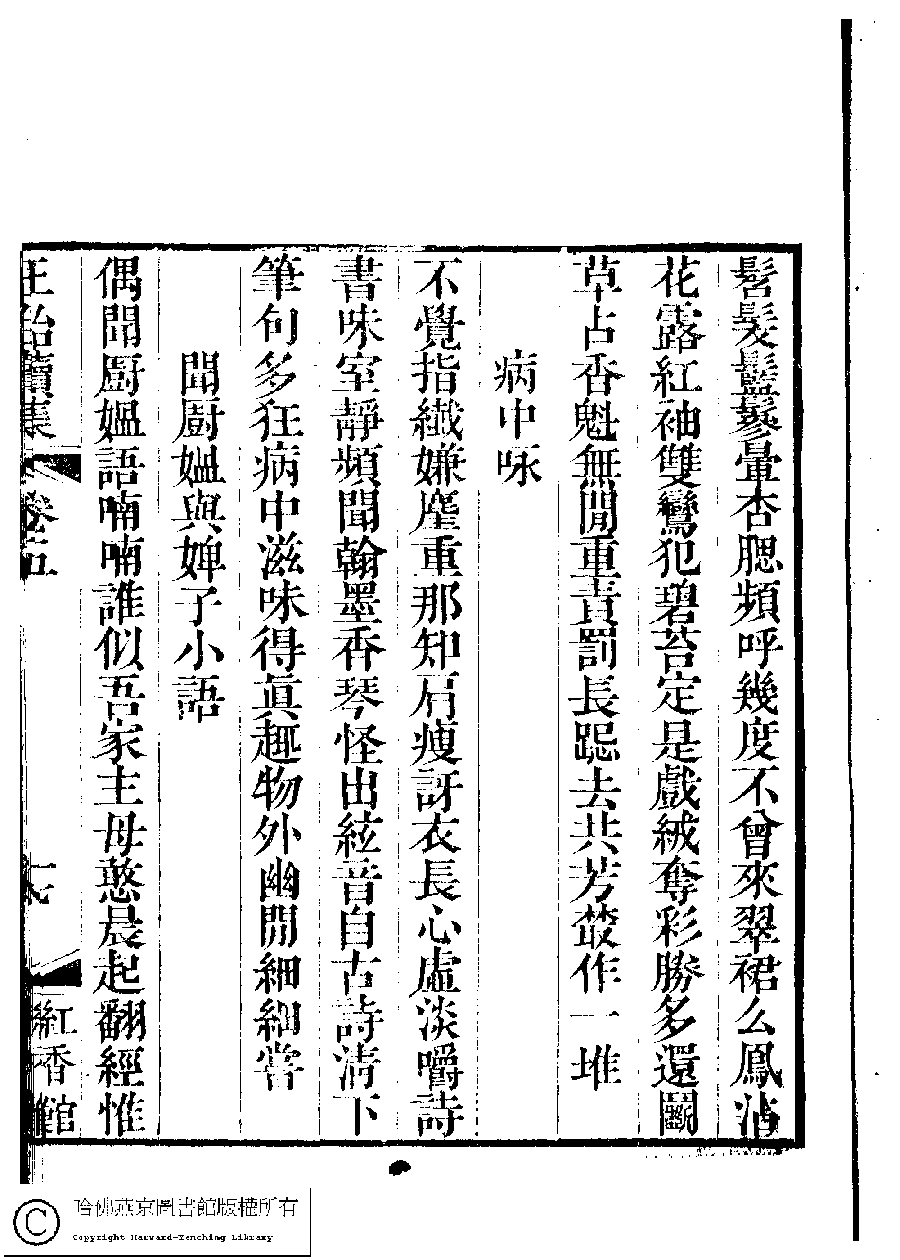 髫髮鬖鬖暈杏腮頻呼幾度不曾來翠裙么鳳沾
花露紅袖雙鸞犯碧苔定是戲絨奪彩勝多還鬭
草占香魁無閒重責罰長跽去共芳叢作一堆
病中咏
不覺指纎嫌塵重那知肩瘦訝衣長心虛淡嚼詩
書味室靜頻聞翰墨香琴怪出絃音自古詩清下
筆句多狂病中滋味得眞趣物外幽閒細細嘗
聞厨媪與婢子小語
偶聞厨媪語喃喃誰似吾家主母憨晨起翻經惟
續集 卷五 紅香館
哈佛燕京圖書館版權所有
Copyright Harvard-Yenching Library